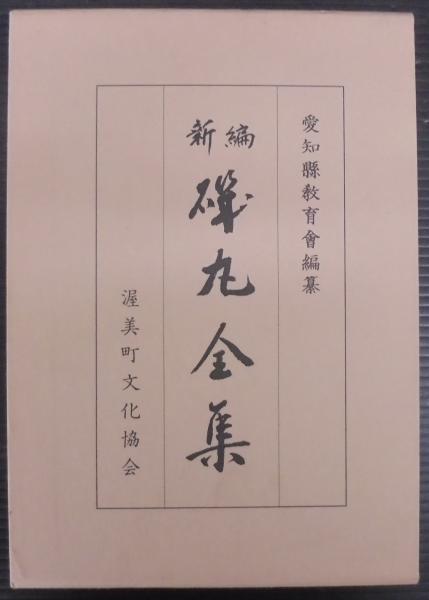 愛知縣敎育會編纂
新編
磯丸全集
渥美町文化協会